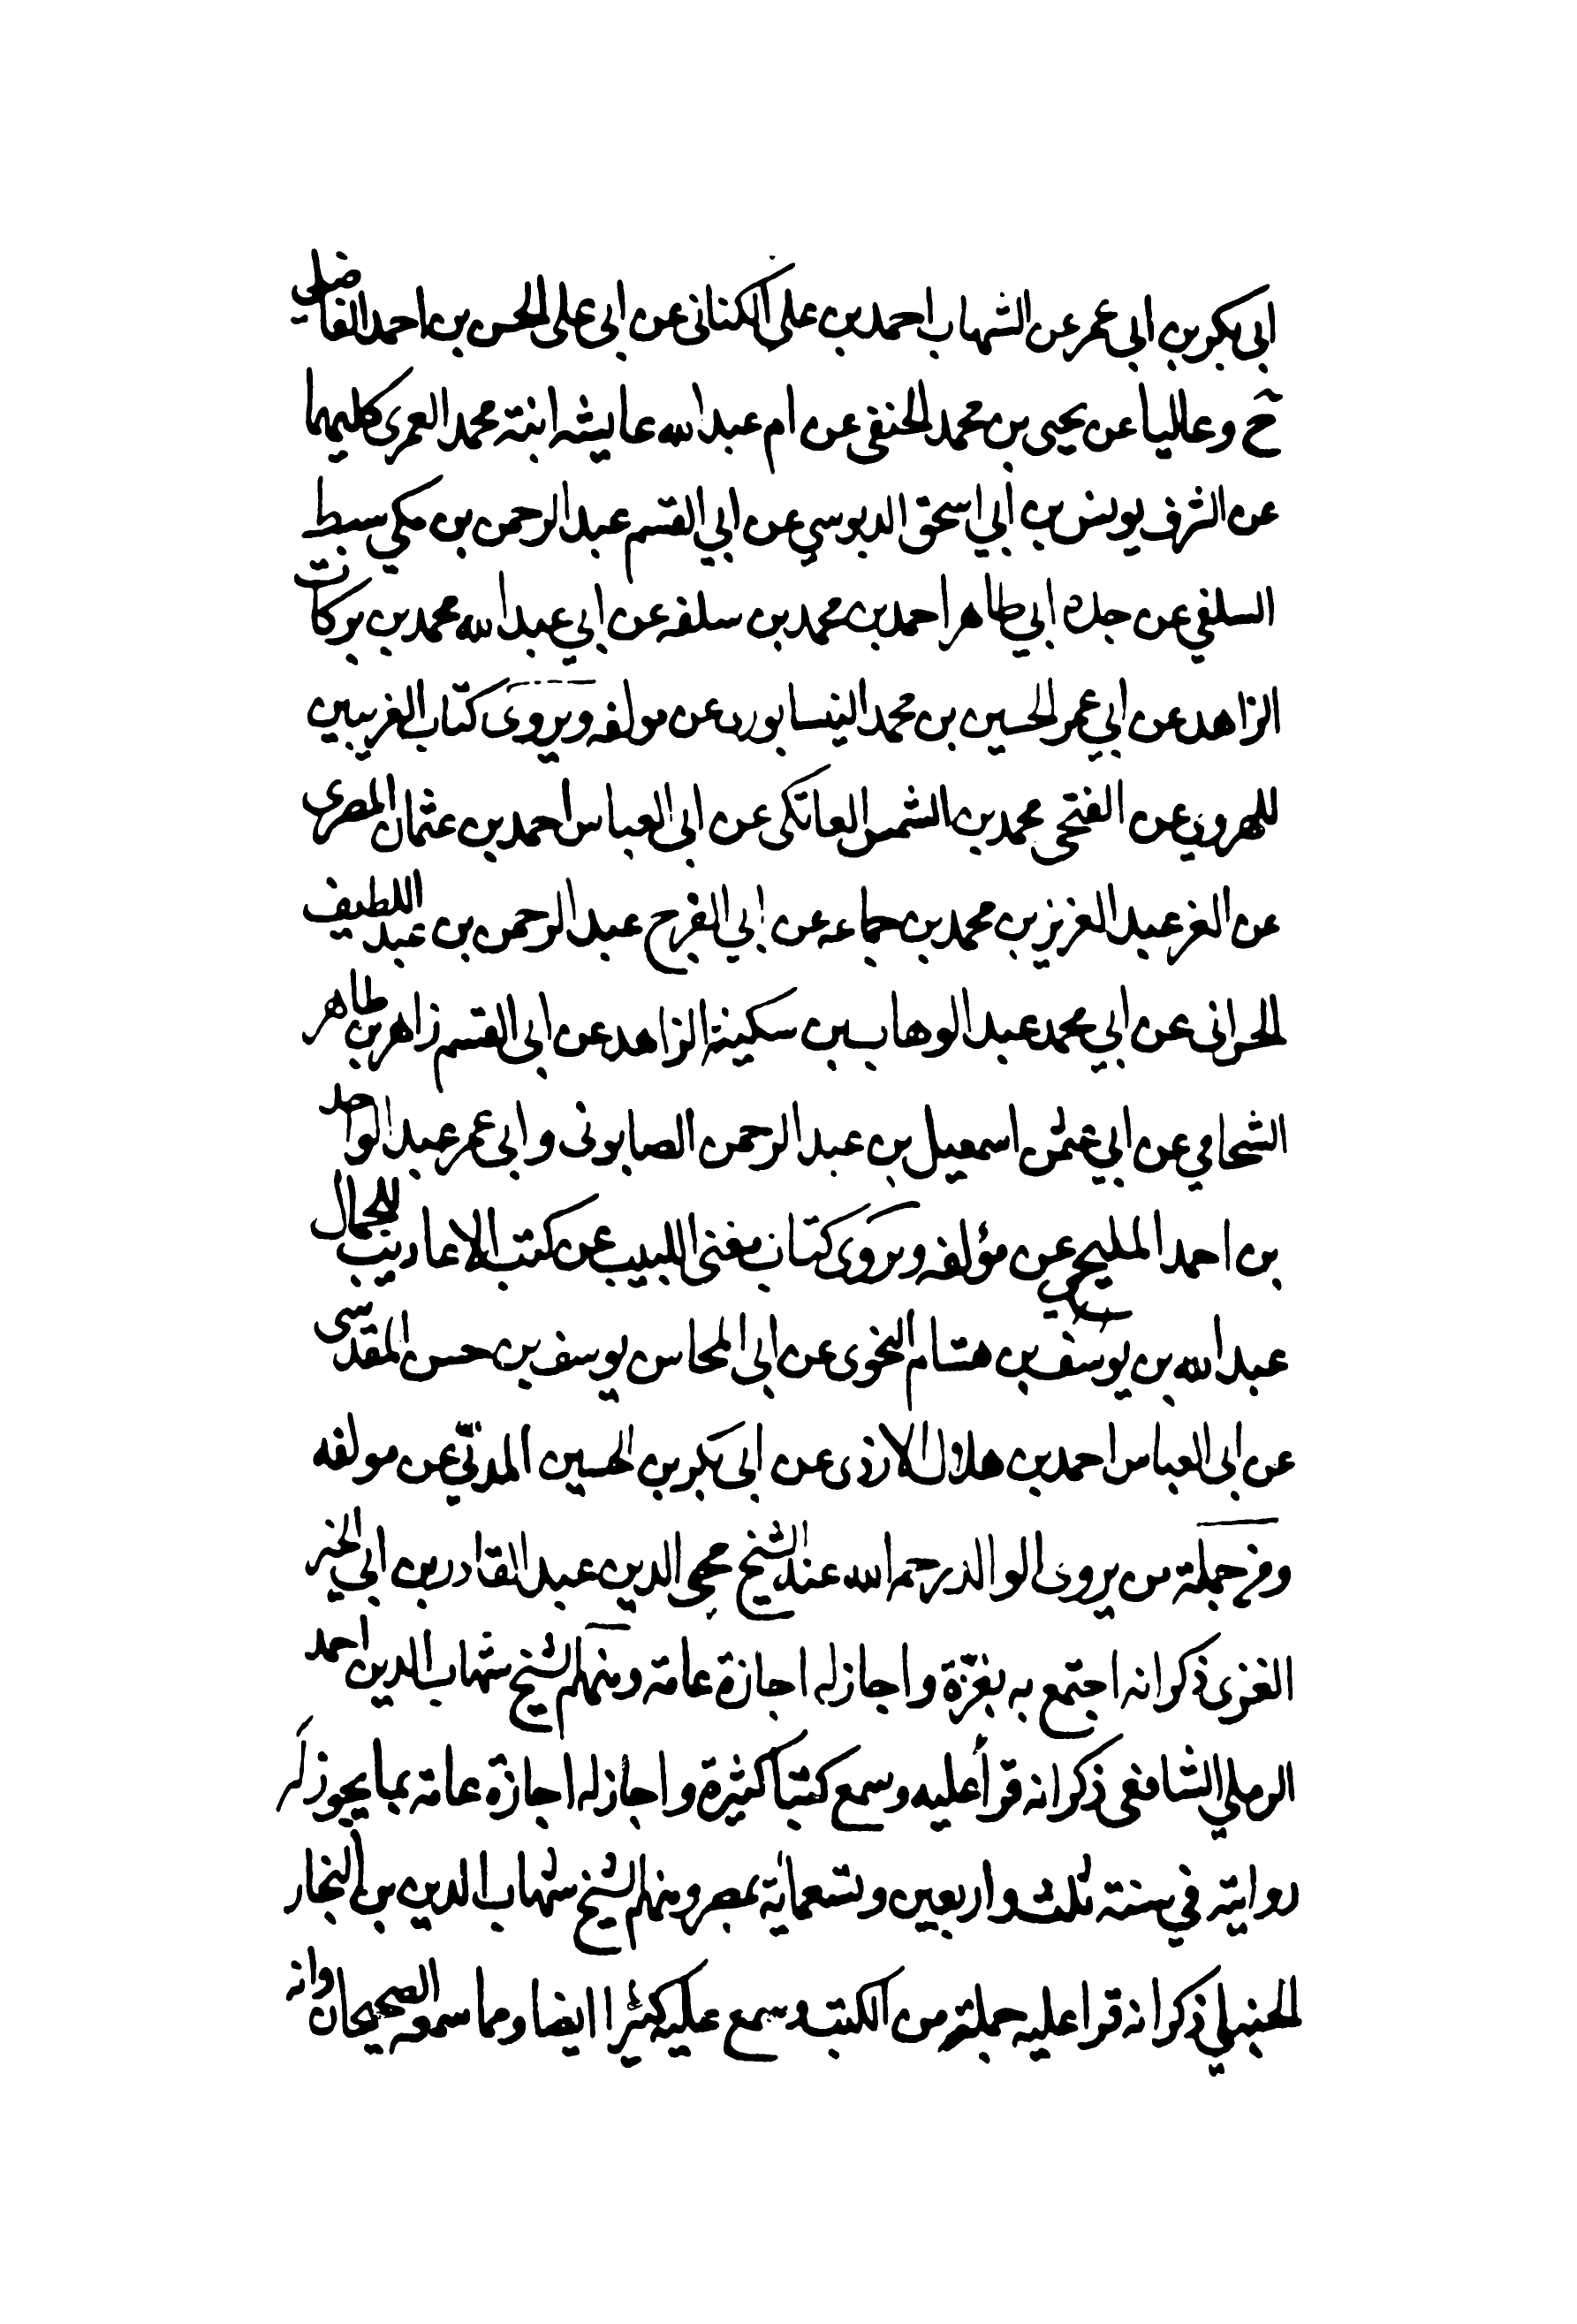 ابي بكر بن ابي عمر عن الشهاب احمد بن على الكنانى عن ابى على الحسن بن احمد الفاضلي
ح وعاليا عن يحيى بن محمد الحنفى عن ام عبد الله عايشه ابنة محمد العمرى كليهما
عن الشرف يونس بن أبي اسحق الدبوسي عن ابي القسم عبد الرحمن بن مكي سبط
السلفي عن جده ابي طاهر احمد بن محمد بن سلفه عن ابي عبد الله محمد بن بركات
الزاهد عن ابي عمر الحسين بن محمد النيسابورى عن مولفه ويروى كتاب الغريبين
للهروي عن الفتحى محمد بن الشمس العاتكى عن ابى العباس احمد بن عثمان المصرى
عن العز عبد العزيز بن محمد بن جماعه عن ابي الفرج عبد الرحمن بن عبد اللطيف
الحرانى عن ابي محمد عبد الوهاب بن سكينة الزاهد عن ابى القسم زاهر بن طاهر
الشحامي عن ابي عثمن اسمعيل بن عبد الرحمن الصابونى وابى عمر عبد الواحد
بن احمد المليحي عن مؤلفه ويروى كتاب مغنى اللبيب عن كتب الاعاريب للجمال
عبد الله بن يوسف بن هشام النحوى عن ابى المحاسن يوسف بن حسن المقدسى
عن ابى العباس احمد بن هلال الازدى عن ابى بكر بن الحسين المدني عن مولفه
ومن جملة من يروى الوالد رحمه الله عنه الشيخ محيى الدين عبد القادر بن ابي الخير
الغزى ذكر انه اجتمع به بغزة واجاز له اجازة عامة ومنهم الشيخ شهاب الدين احمد
الرملي الشافعى ذكر انه قرأ عليه وسمع كتبا كثيرة واجاز له اجازة عامة بما يجوز له
روايته في سنة ثلث واربعين وتسعماية بمصر ومنهم الشيخ شهاب الدين بن النجار
الحنبلي ذكر انه قرا عليه جملة من الكتب وسمع عليه كثيرا ايضا ومما سمعه الصحيحان وانه